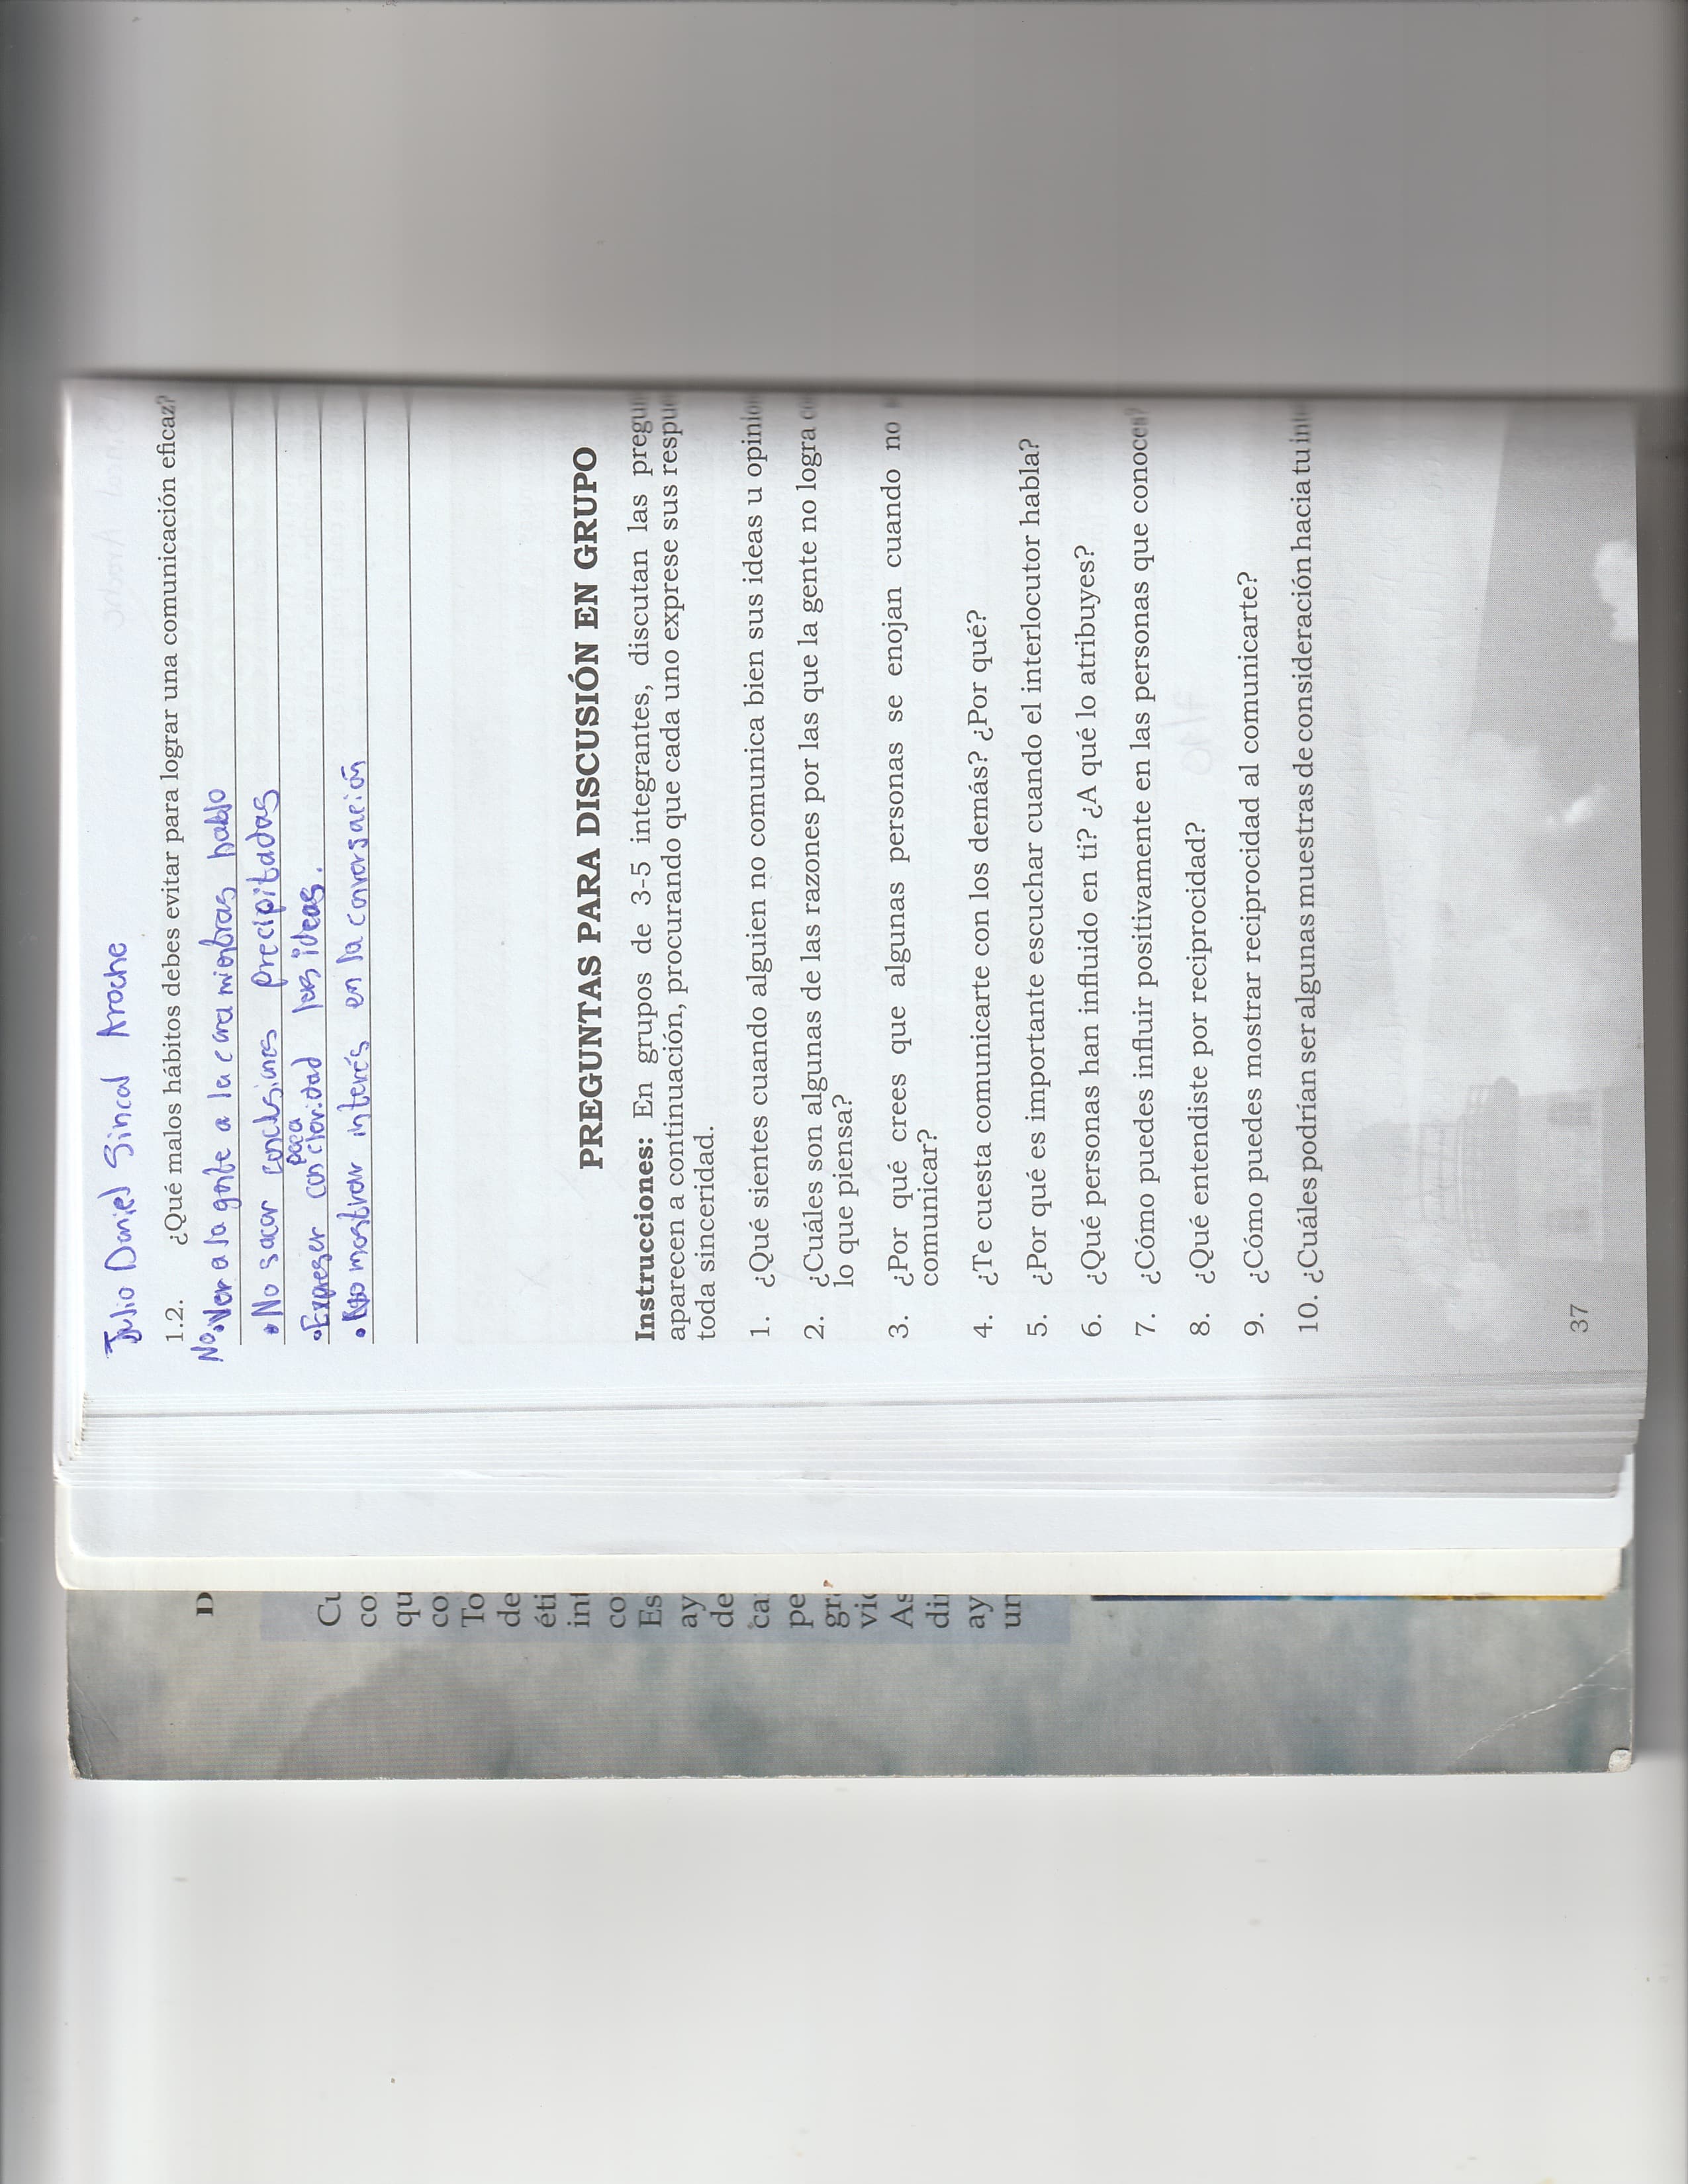 Julio Daniel Sincal Arroche
1.2. ¿Qué malos hábitos debes evitar para lograr una comunicación eficaz?
No •Ver a la gente a la cara mientras hablo
• No sacar conclusiones precipitadas
poca
•Expreser con claridad las ideas.
• No mostrar interés en la conversación
PREGUNTAS PARA DISCUSIÓN EN GRUPO
Instrucciones: En grupos de 3-5 integrantes, discutan las pregun
aparecen a continuación, procurando que cada uno exprese sus respue
toda sinceridad.
1. ¿Qué sientes cuando alguien no comunica bien sus ideas u opinio
2. ¿Cuáles son algunas de las razones por las que la gente no logra co
lo que piensa?
3. ¿Por qué crees que algunas personas se enojan cuando no
comunicar?
4. ¿Te cuesta comunicarte con los demás? ¿Por qué?
5. ¿Por qué es importante escuchar cuando el interlocutor habla?
6. ¿Qué personas han influido en ti? ¿A qué lo atribuyes?
7. ¿Cómo puedes influir positivamente en las personas que conoces?
8. ¿Qué entendiste por reciprocidad?
9. ¿Cómo puedes mostrar reciprocidad al comunicarte?
10. ¿Cuáles podrían ser algunas muestras de consideración hacia tu in
37
D
Cu
co
qu
co
To
de
éti
int
co
Es
ay
de
ca
pe
gr
vi
As
di
ay
un